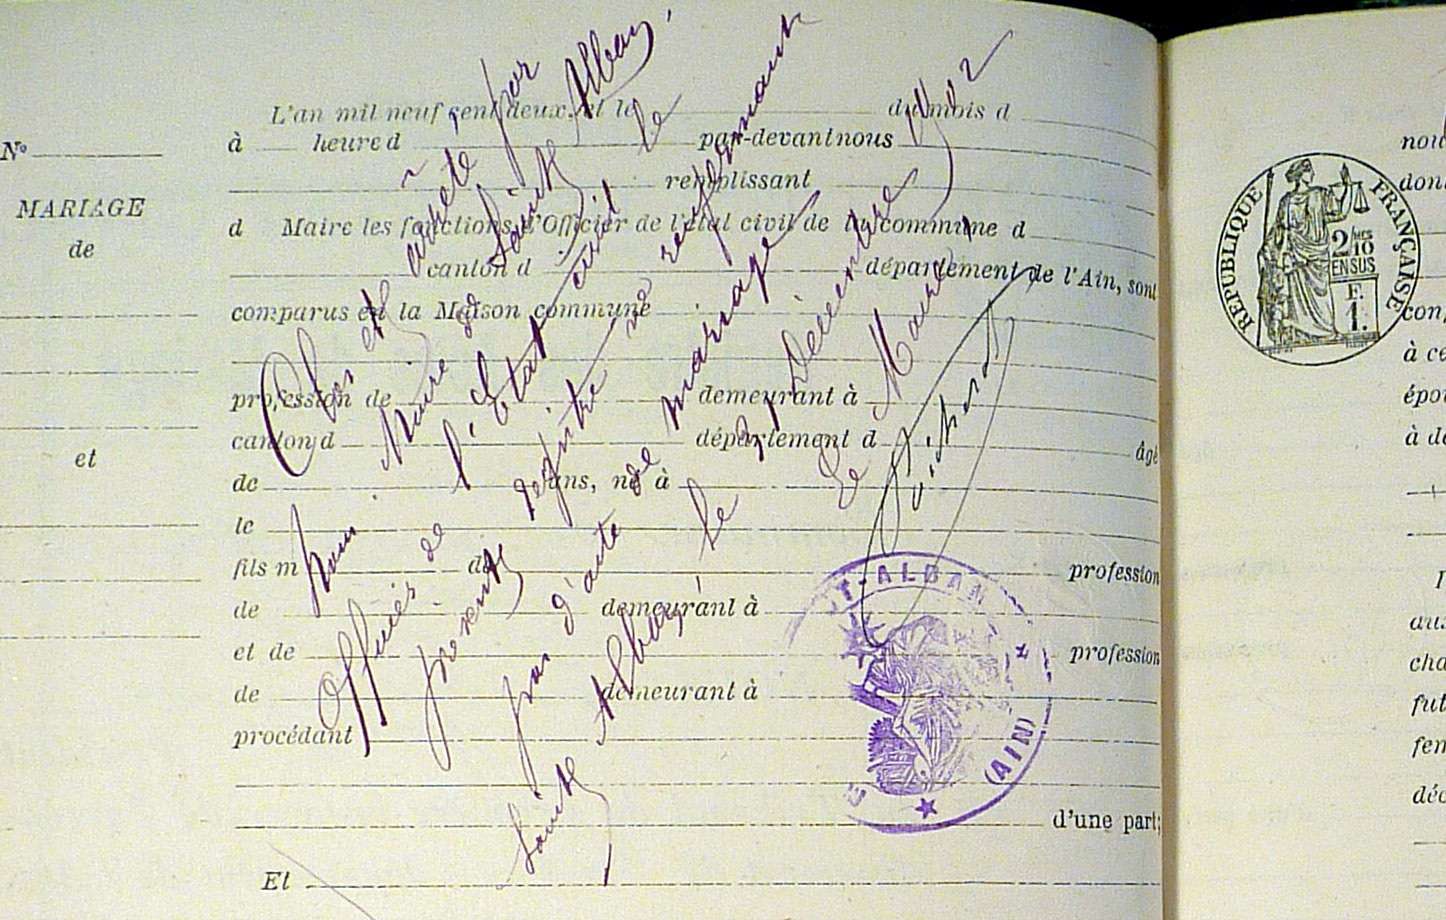 L'an mil neuf cent deux, et le du mois d
à heure d par-devant nous
remplissant
d Maire les fonctions d'Officier de l'état civil de la commune d
canton d département de l'Ain, sont
comparus en la Maison commune
profession de demeurant à
canton d département d âgé
de ans, né à
le
fils m de profession
de demeurant à
et de profession
de demeurant à
procédant
d'une part;
Et
N°
MARIAGE
de
et
Clos et arrêté par
nous Maire de Sainte Alban,
Officier de l'Etat civil le
présente registre ne renfermant
pas d'acte de mariage
Sainte Alban, le 31 Décembre 1902
Le Maire,
T-ALBAN
(AIN)
RÉPUBLIQUE FRANÇAISE
2/10
EN SUS
F.
1.
nou
don
con
à ce
épou
à de
aus
cha
fut
fem
déc